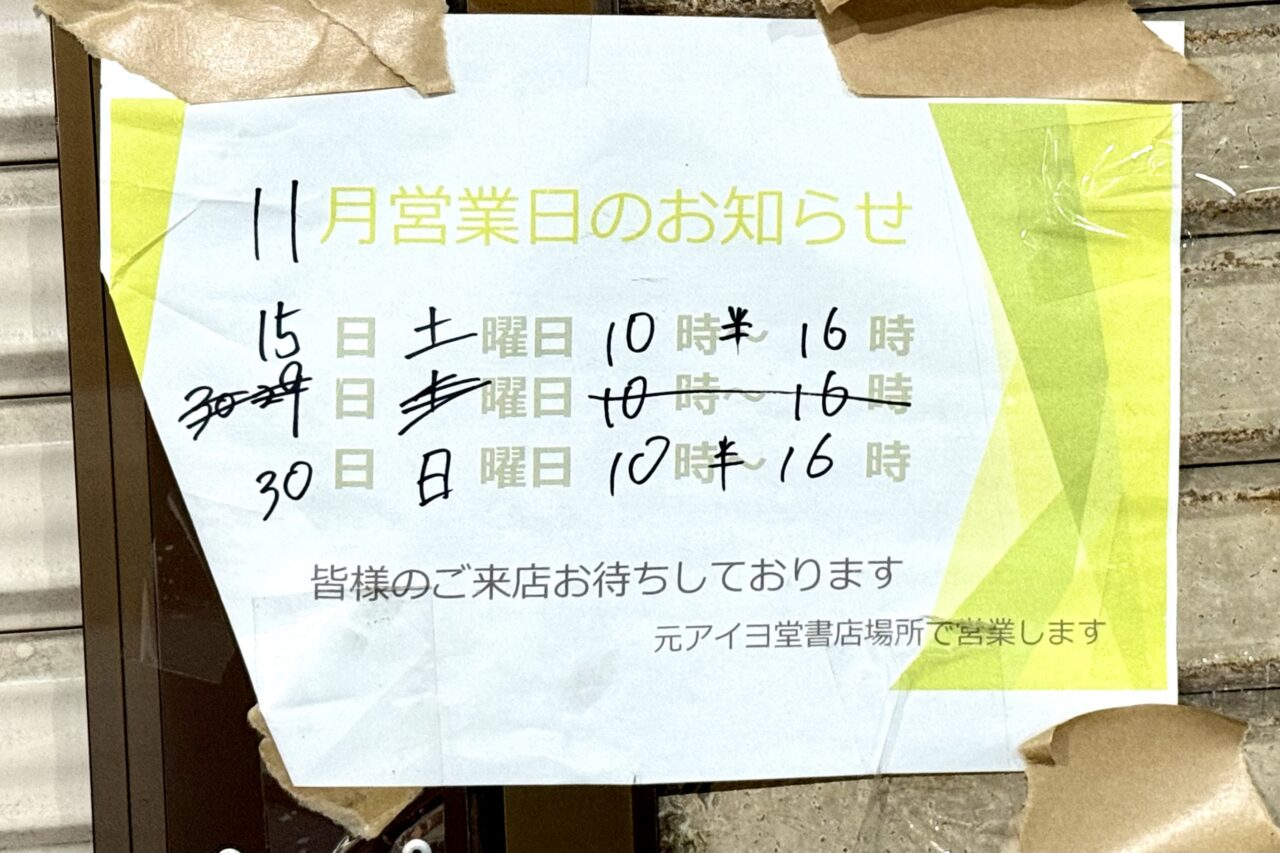 11月営業日のお知らせ
15日 土曜日 10時半～16時
日 土曜日 10時～16時
30日 日曜日 10時半～16時
皆様のご来店お待ちしております
元アイヨ堂書店場所で営業します